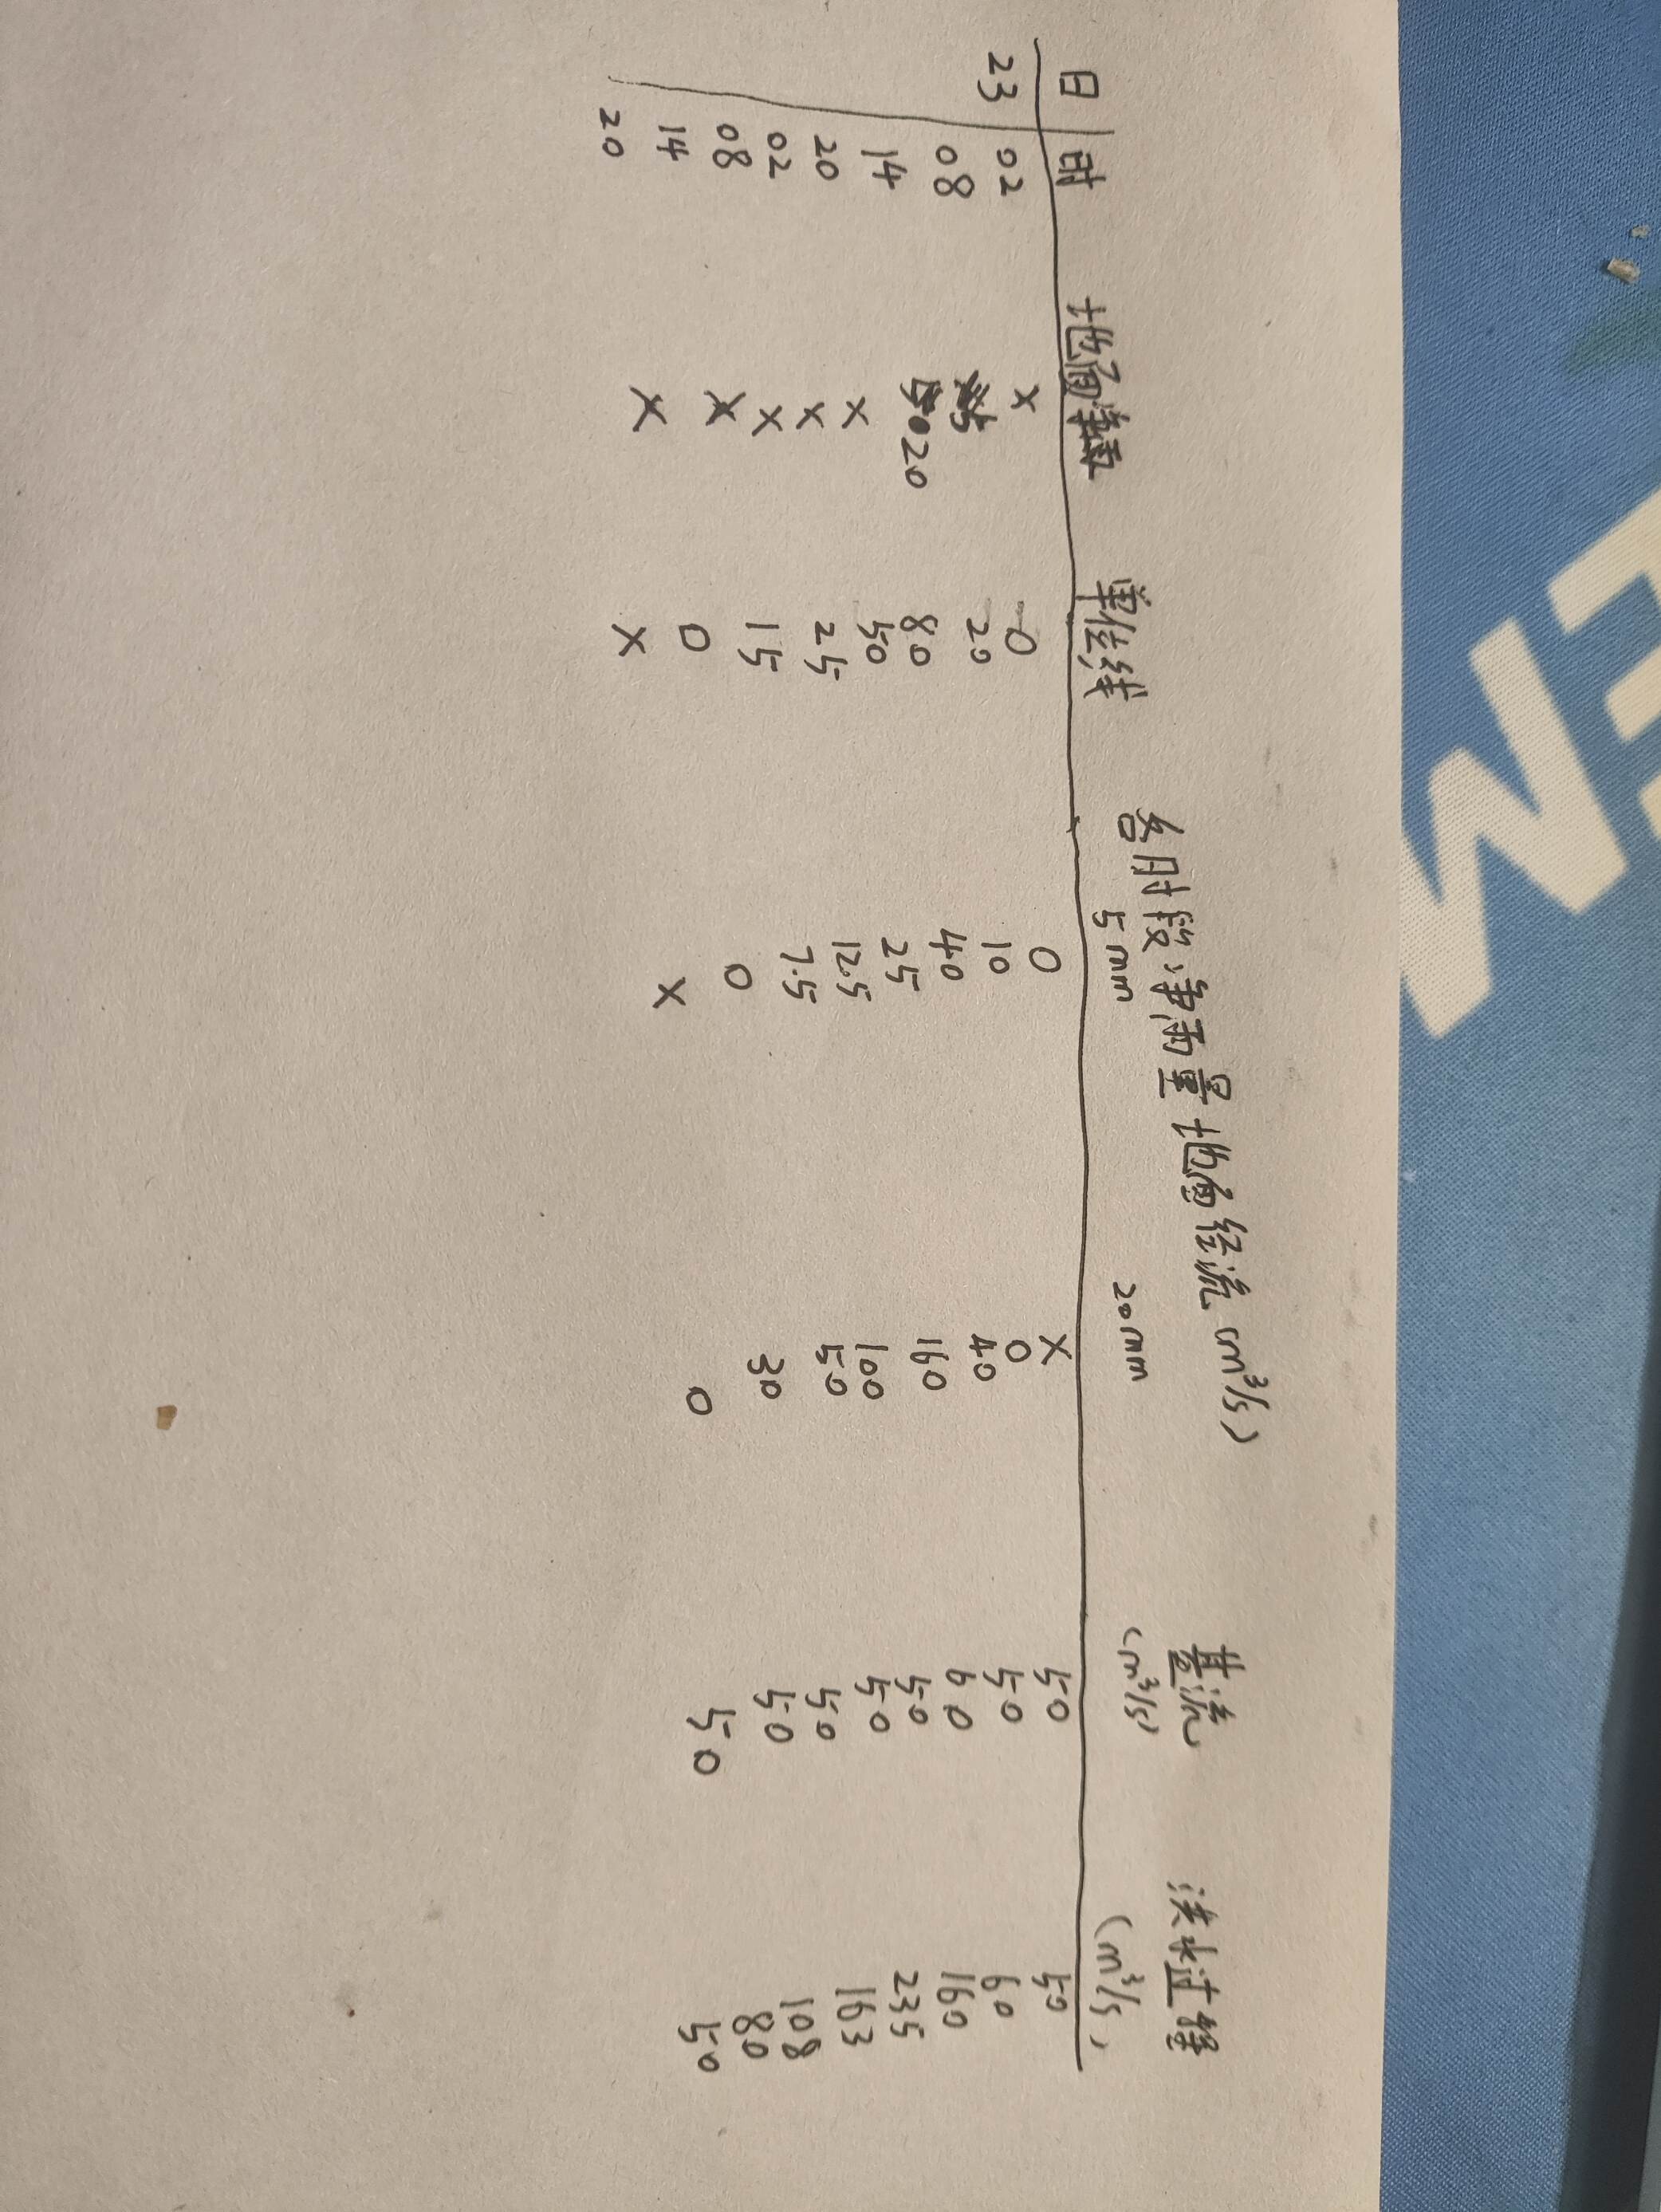 各时段净雨量地面径流 (m³/s) 基流 洪水过程
日 时 地面净雨 单位线 5mm 20mm (m³/s) (m³/s)
23 02 x 0 0 X 50 50
08 20 10 0 50 60
14 20 80 40 40 60 160
20 x 50 25 160 50 235
02 x 25 12.5 100 50 163
08 x 15 7.5 50 50 108
14 X 0 0 30 50 80
20 X X X 0 50 50